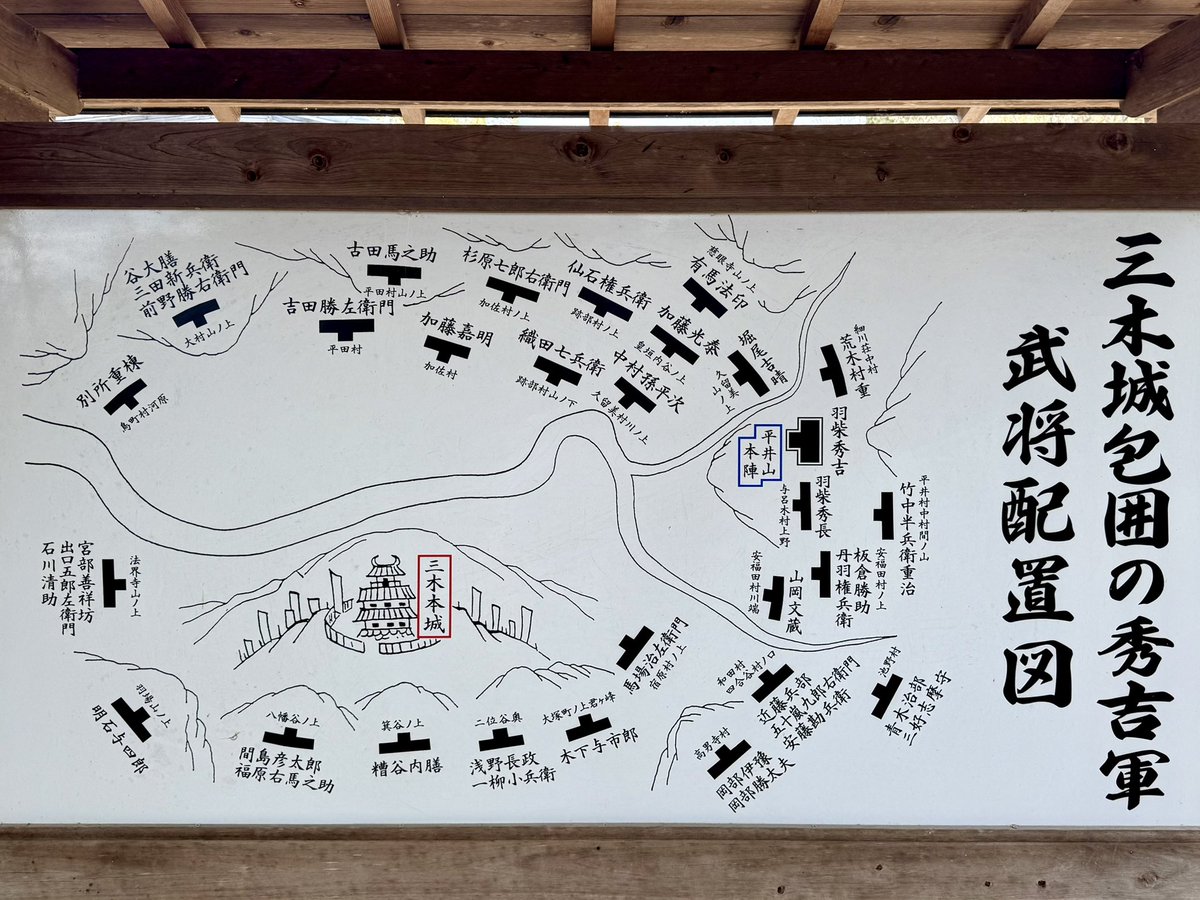 三木城包囲の秀吉軍
武将配置図
谷大膳
三田新兵衛
前野勝右衛門
大村山ノ上
古田馬之助
平田村山ノ上
吉田勝左衛門
平田村
別所重棟
鳥町村河原
杉原七郎右衛門
加佐村ノ上
仙石権兵衛
跡部村ノ上
慈眼寺山ノ上
有馬法印
加藤嘉明
加佐村
織田七兵衛
跡部村山ノ下
加藤光泰
皇垣内谷ノ上
中村孫平次
久留美村川ノ上
堀尾吉晴
久留美山ノ上
細川荘中村
荒木村重
羽柴秀吉
平井山
本陣
羽柴秀長
与呂木村上野
平井村中村間ノ山
竹中半兵衛重治
安福田村ノ上
板倉勝助
丹羽権兵衛
山岡文蔵
安福田村川端
三木本城
法界寺山ノ上
宮部善祥坊
出口五郎左衛門
石川清助
羽場山ノ上
明石与四郎
八幡谷ノ上
間島彦太郎
福原右馬之助
箕谷ノ上
糟谷内膳
二位谷奥
浅野長政
一柳小兵衛
大塚町ノ上君ヶ峰
木下与市郎
馬場治左衛門
宿原村ノ上
和田村
四合谷村ノ口
近藤兵部
五十嵐九郎右衛門
安藤勘兵衛
高男寺村
岡部伊豫
岡部勝太夫
池野村
青木治部
三好志摩守